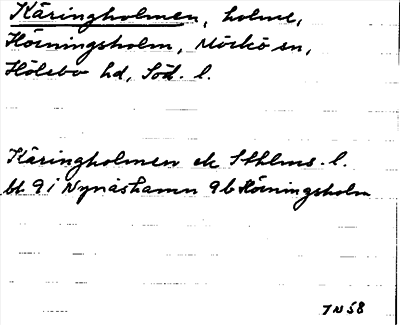 Käringholmen, holme,
Hörningsholm, Mörkö sn,
Hölebo hd, Söd. l.
Käringholmen ek Sthlms. l.
bl 9 i Nynäshamn 9b Hörningsholm
IN 58